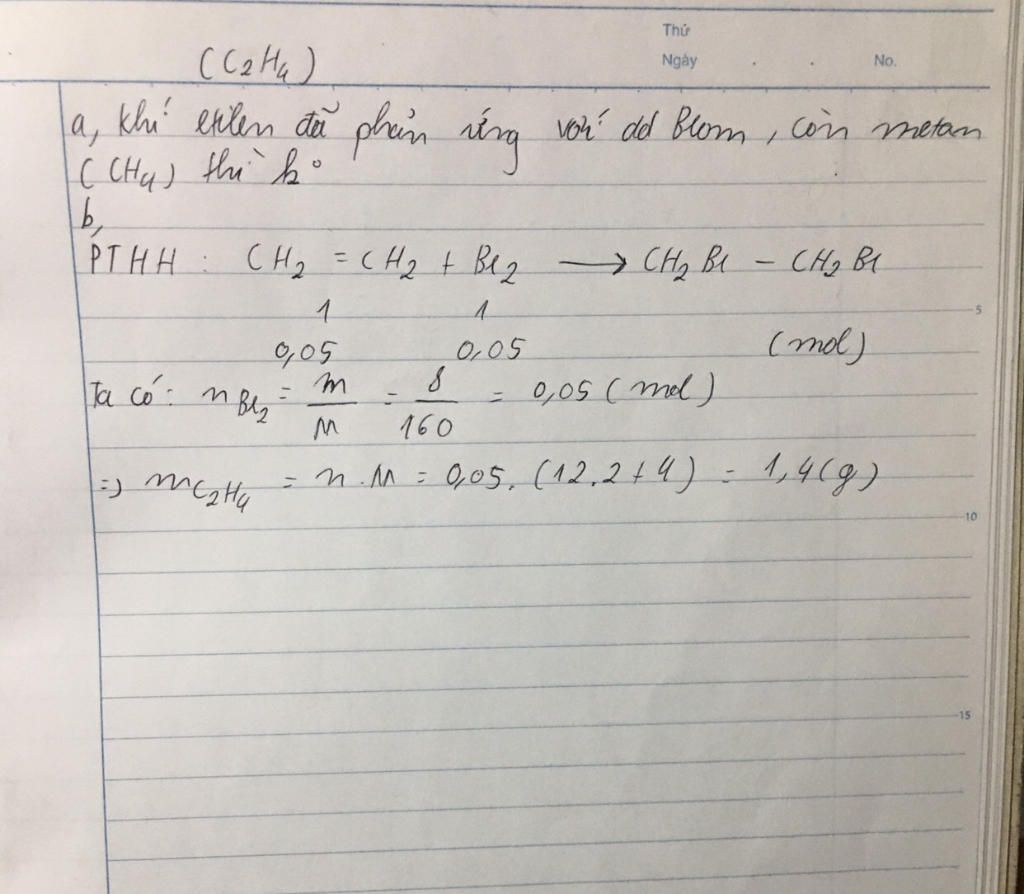 Thứ
Ngày . . No.
(C2H4)
a, khí etilen đã phản ứng với dd Brom, còn metan
(CH4) thì k°
b,
PTHH : CH2 = CH2 + Br2 → CH2Br - CH2Br
1 1
5
0,05 0,05 (mol)
Ta có: nBr2 = m/M = 8/160 = 0,05 (mol)
=> mC2H4 = n.M = 0,05.(12.2+4) = 1,4(g)
10
15